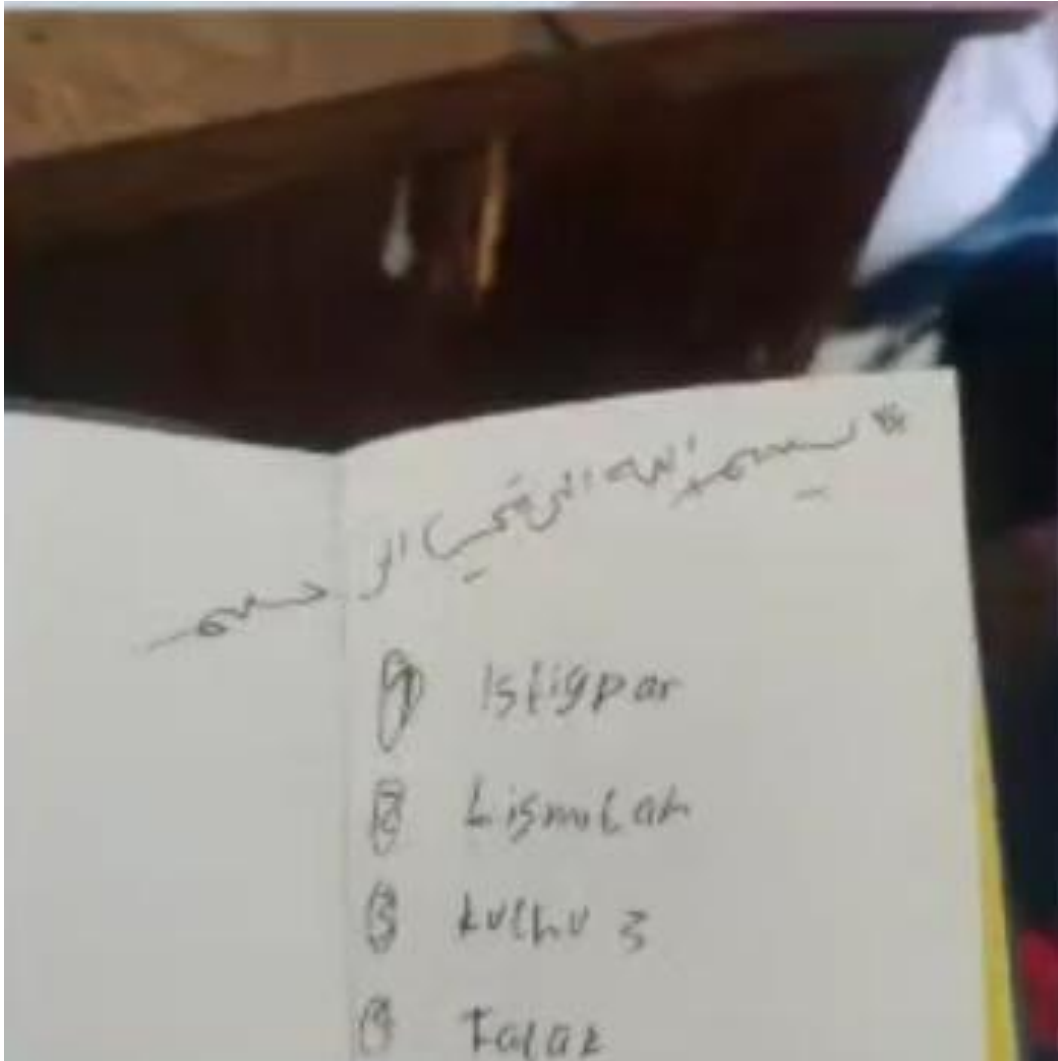 بسم الله الرحمن الرحيم
① Istigpar
② bismilah
③ kulhu 3
④ Falak